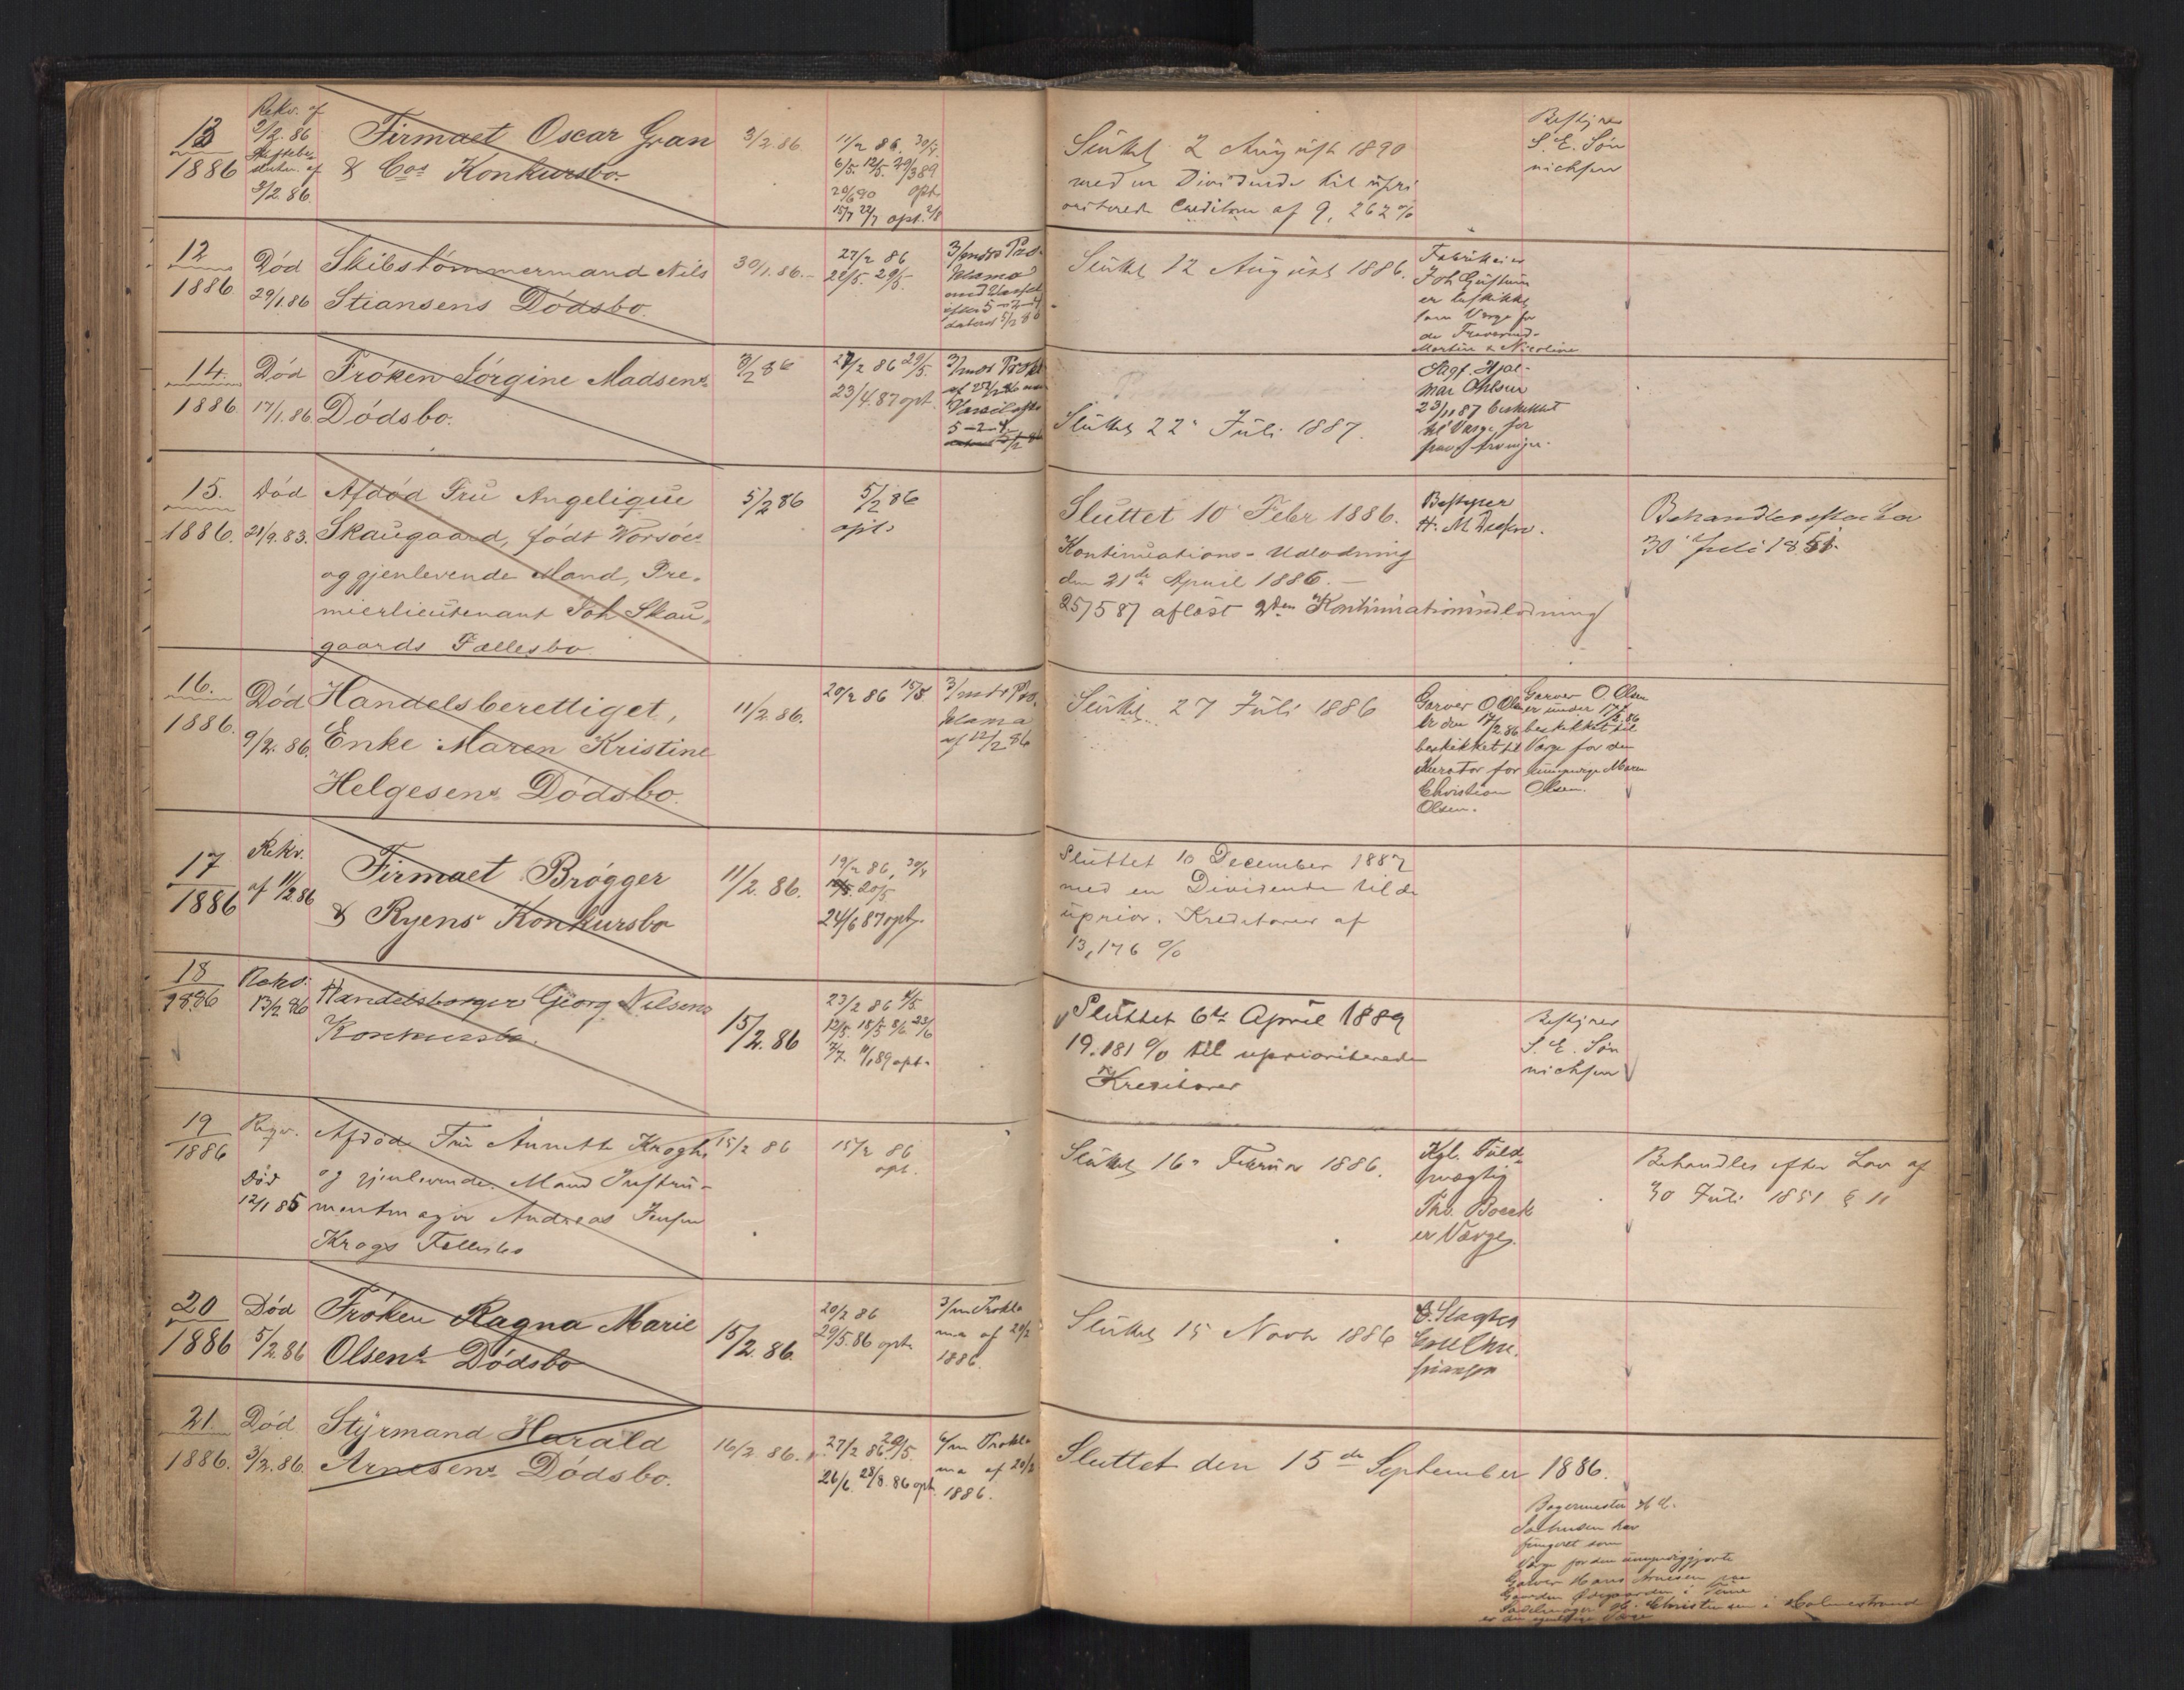 13
1886
Rekv. af
2/2.86
Skiftebe-
slutn. af
3/2.86.
Firmaet Oscar Gran
& Cos Konkursbo
3/2.86.
11/2 86. 30/4.
6/5. 12/5. 29/3 89
20/6 90 opt.
15/7 22/7 opt. 2/8
Sluttet 2 August 1890
med en Dividende til upri
oriterede Creditorer af 9,262 %
Bestyrer
S. E. Søn
nichsen
12
1886.
Død
29/1.86
Skibstømmermand Nils
Stiansens Dødsbo.
30/1.86.-
27/2 86
22/5. 29/5.
3/mdrs Pro-
klama
med Varsel
efter 5-2-4
dateret 5/2 86
Sluttet 12 August 1886.
Fabrikeier
Joh. Gustum
er beskikket
som Verge for
de Fraværend-
Martin & Nicoline
14.
1886.
Død
17/1.86
Frøken Jørgine Madsens
Dødsbo.
3/2 86
27/2 86 29/5.
23/4.87 opt.
3/mdrs Prokl
af
Varsel efter
5-2-4.
5/2 86
Sluttet 22 Juli 1887.
Sagf. Hjal-
mar Ohlsen
23/11 87 beskikket
til Værge for
15.
1886.
Død
21/9.83.
Afdød Fru Angelique
Skaugaard, født Worsøe
og gjenlevende Mand, Pre-
mierlieutenant Joh Skau-
gaards Fællesbo.
5/2 86
5/2 86
opt.
Sluttet 10 Febr 1886.
Kontinuations-Udlodning
den 21de April 1886.-
25/5 87 afløst 2den Kontinuationsudlodning
Bestyrer
H. M.
Behandles efter Lov
30 Juli 1851.
16.
1886.
Død
9/2.86.
Handelsberettiget,
Enke Maren Kristine
Helgesens Dødsbo.
11/2.86.
20/2 86 15/5
3/mdrs Pro.
klama
af 12/2 86
Sluttet 27 Juli 1886
Garver O Olsen
er den 17/2.86
beskikket til
Kurator for
Christian
Olsen.
Garver O. Olsen
er under 17/2.86
beskikket til
Værge for den
umyndige Maren
Olsen.
17
1886
Rekv.
af 11/2.86
Firmaet Brøgger
& Ryens Konkursbo
11/2.86.
19/2 86, 30/4
20/5.
24/6 87 opt.
Sluttet 10 December 1887
med en Dividende til de
uprior. Kreditorer af
13,176 %
18
1886
Rekv.
13/2 86
Handelsborger Georg Nilsens
Konkursbo.
15/2.86
23/2 86 4/5.
12/5. 18/5 8/6 23/6
7/7. 11/1 89 opt.
Sluttet 6te April 1889
19.181 % til uprioriterede
Kreditorer
Bestyrer
S. E. Søn
nichsen
19
1886
Reqv.
Død
12/1 85
Afdøde Fru Annette Kroghs
og gjenlevende Mand Instru-
mentmager Andreas Jensen
Krogs Fællesbo
15/2 86
15/2 86
opt.
Sluttet 16 Februar 1886.
Kgl. Fuld-
mægtig
Thv. Boeck
er Værge.
Behandles efter Lov af
30 Juli 1851 § 11
20
1886
Død
5/2.86
Frøken Ragna Marie
Olsens Dødsbo
15/2.86.
20/2 86
29/5.86 opt.
3/m Prokla
ma af 20/2
1886.
Sluttet 15 Novbr 1886
21.
1886.
Død
3/2.86.
Styrmand Harald
Arnesens Dødsbo.
16/2 86.
27/2 86. 29/5.
26/6. 28/8.86 opt.
6/m Prokla
ma af 20/2
1886.
Sluttet den 15de September 1886.
Bagermester H C.
har
fungeret som
Værge for den umyndiggjorte
Garver Hans Arnesen paa
Gaarden i
Sadelmager Christensen i Holmestrand
er den Værge